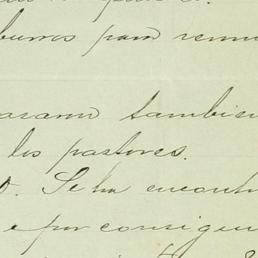 burros para remu
asaron tambien
los pastores.
o. Se ha encontr
e por consiguien